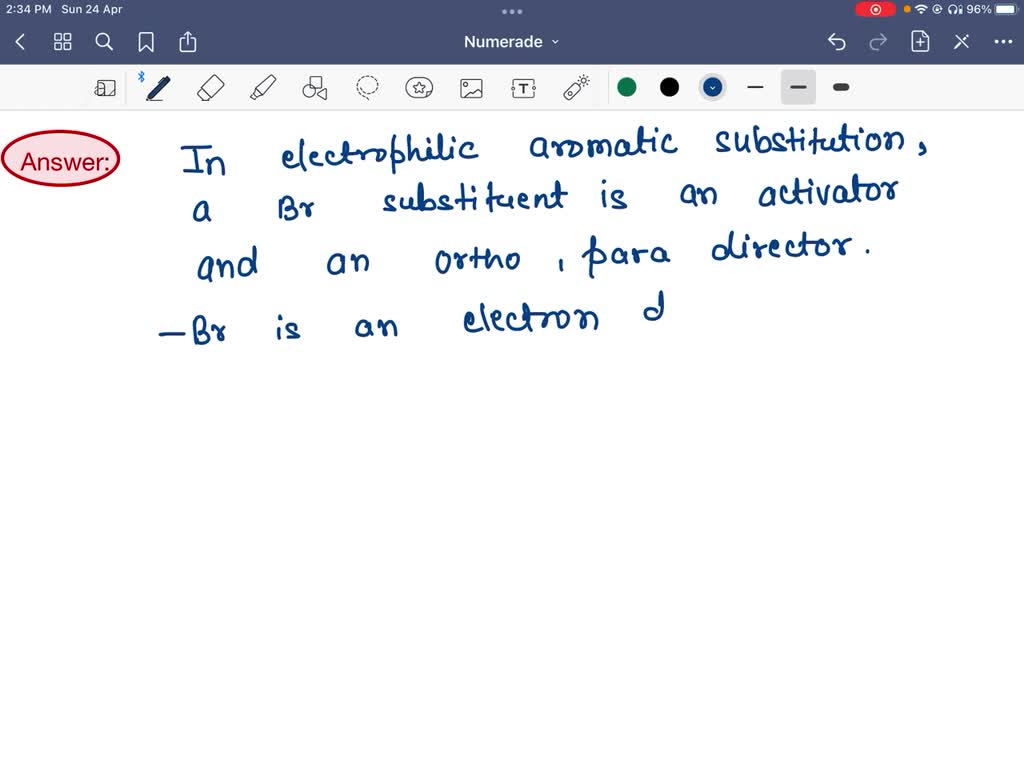 2:34 PM Sun 24 Apr
96%
Numerade
T
Answer:
In electrophilic aromatic substitution,
a Br substituent is an activator
and an ortho, para director.
—Br is an electron d